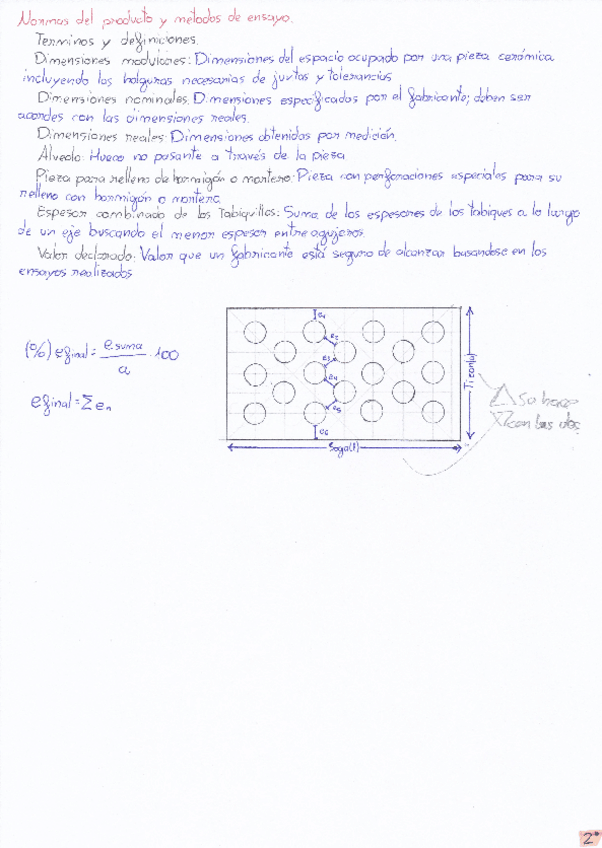 Normas del producto y métodos de ensayo.
Terminos y definiciones.
Dimensiones modulares: Dimensiones del espacio ocupado por una pieza cerámica
incluyendo las holguras necesarias de juntas y tolerancias
Dimensiones nominales: Dimensiones especificadas por el fabricante; deben ser
acordes con las dimensiones reales.
Dimensiones reales: Dimensiones obtenidas por medición.
Alveolo: Hueco no pasante a través de la pieza
Pieza para relleno de hormigón o mortero: Pieza con perforaciones especiales para su
relleno con hormigón o mortero.
Espesor combinado de los Tabiquillos: Suma de los espesores de los tabiques a lo largo
de un eje buscando el menor espesor entre agujeros.
Valor declarado: Valor que un fabricante está seguro de alcanzar basandose en los
ensayos realizados
(%) e final = e suma / a · 100
e final = Σ en
e1
e2
e3
e4
e5
e6
Soga(l)
Tizon(a)
Se hace
con las dos
2*